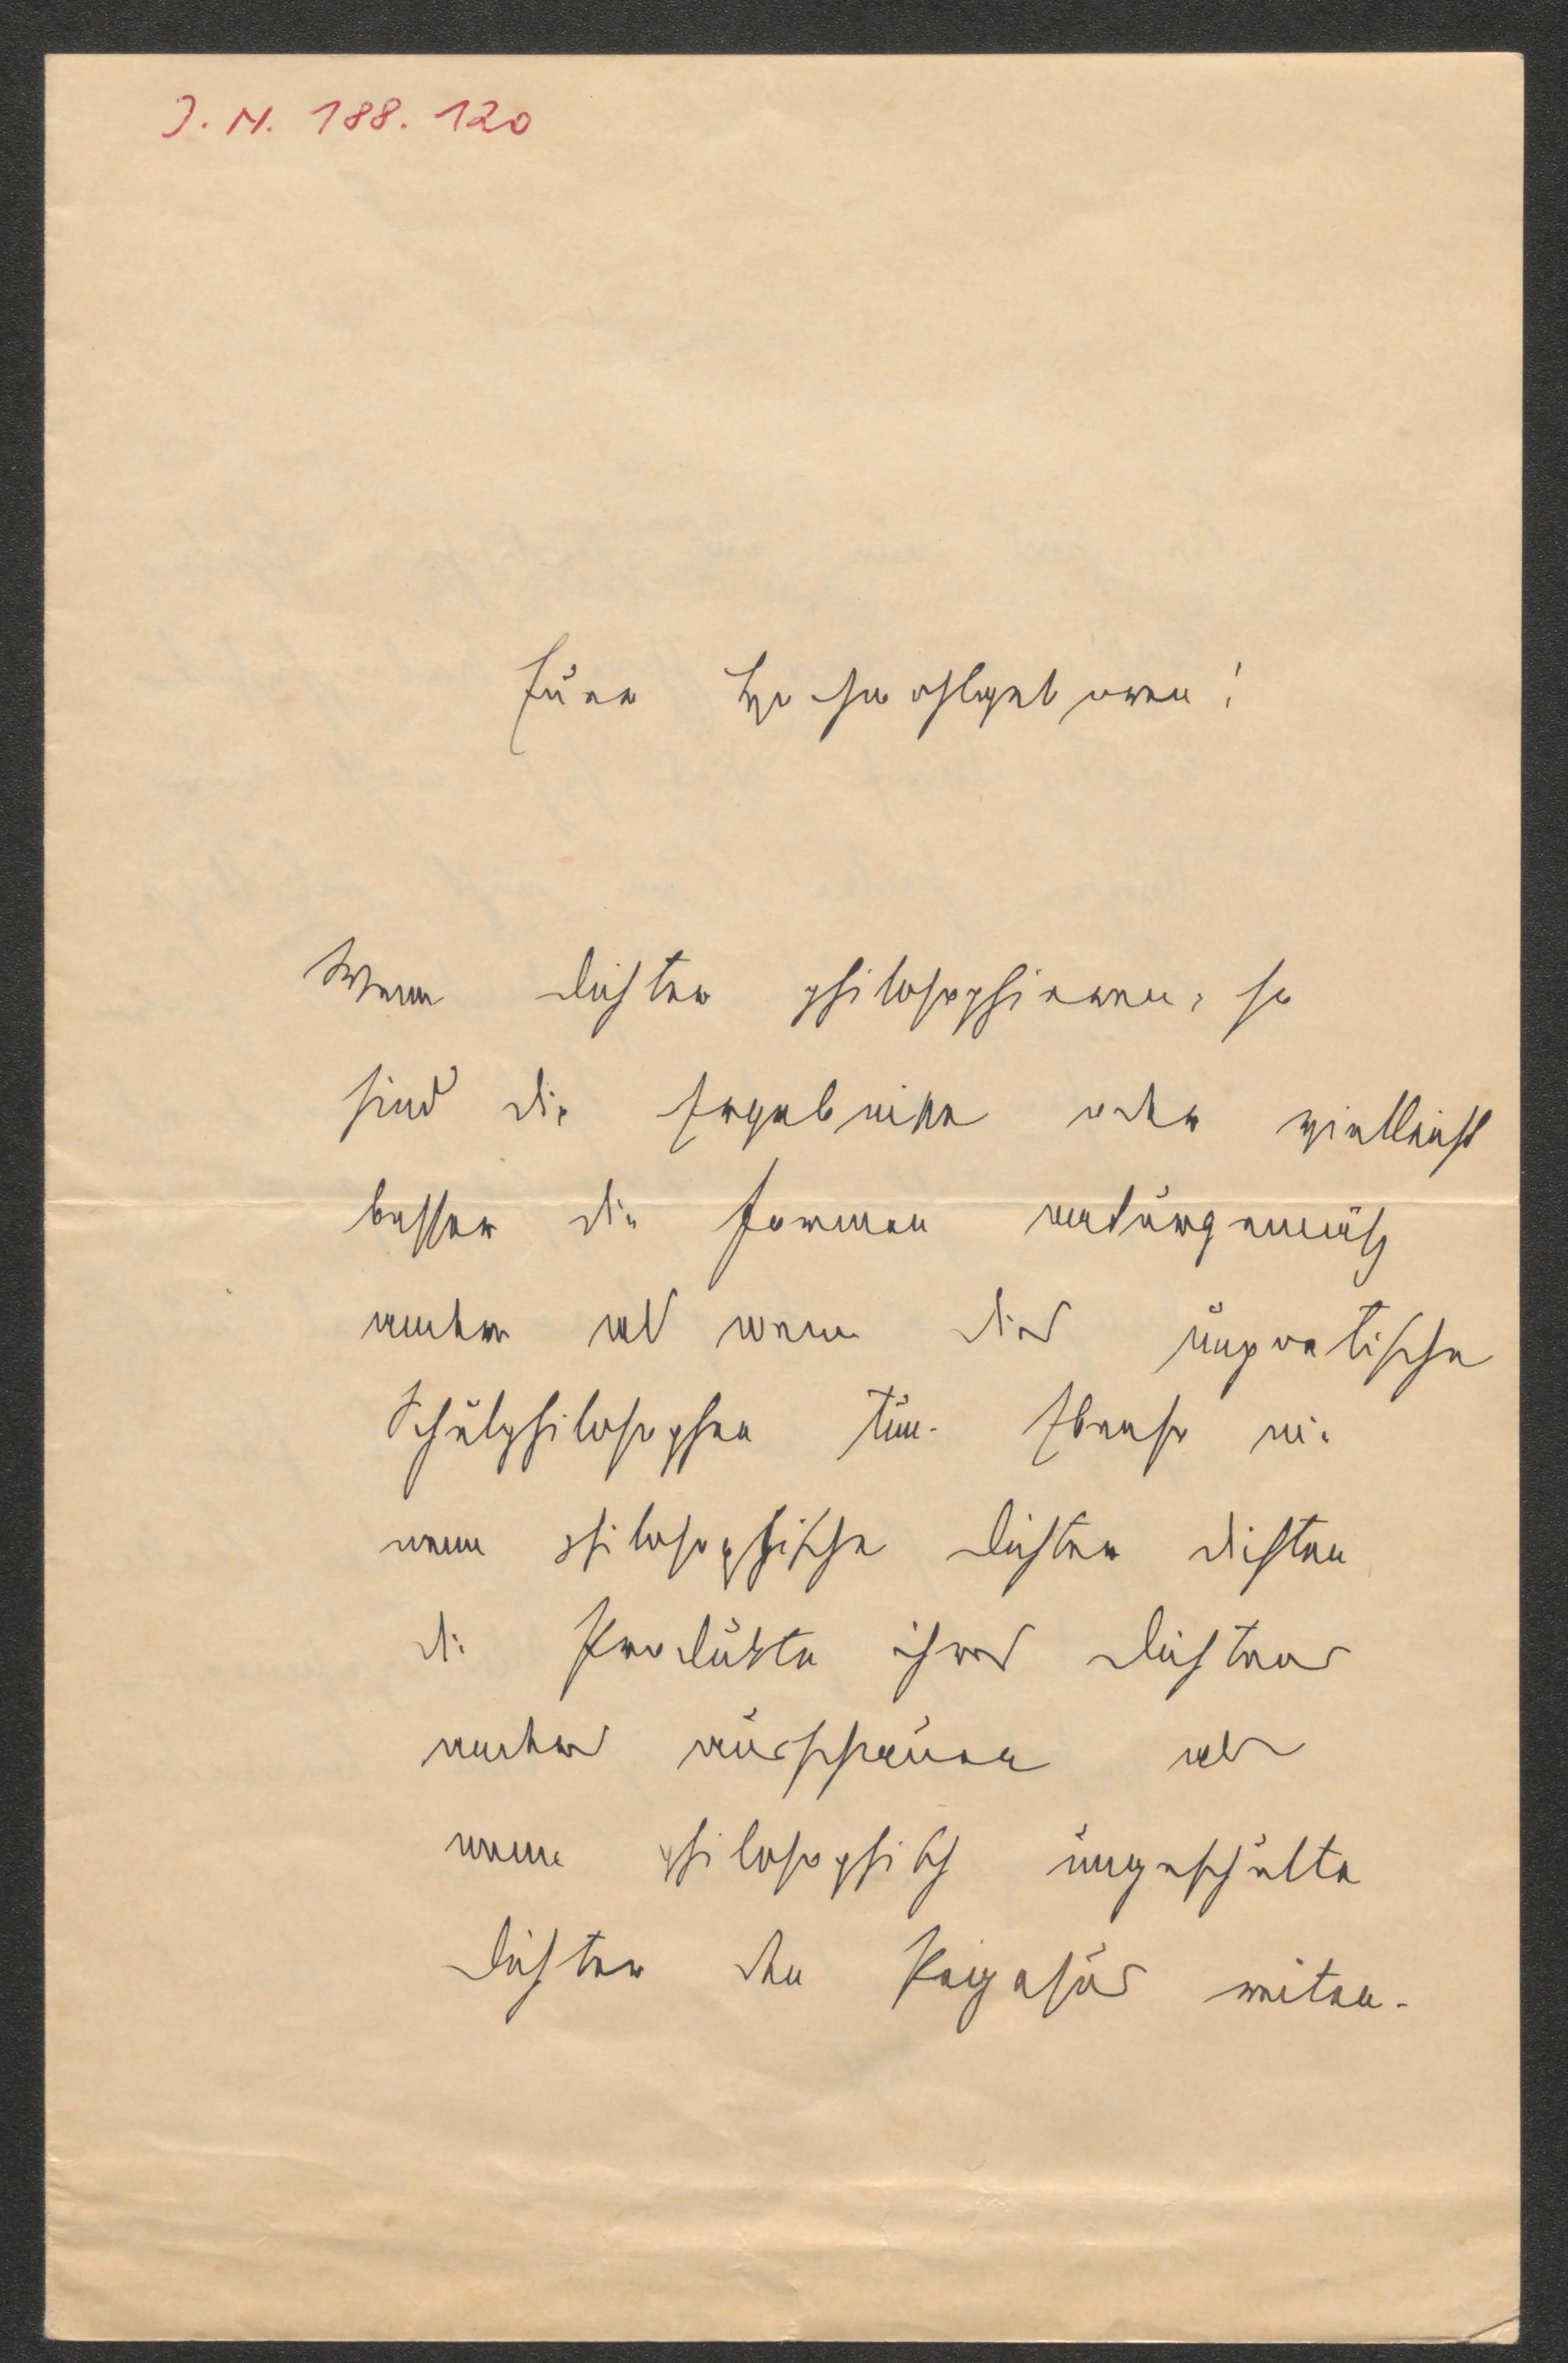 J. N. 188. 120
Euer Hochwohlgeboren!
Wenn Dichter philosophieren, so
sind die Ergebnisse oder vielleicht
besser die Formen naturgemäß
andere als wenn dies unpoetische
Schulphilosophen tun. Ebenso wie
wenn philosophische Dichter dichten
die Produkte ihres Dichtens
anders ausschauen als
wenn philosophisch ungeschulte
Dichter den Pegasus reiten.